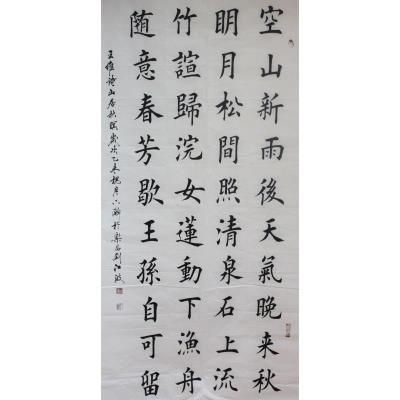 空山新雨後天氣晚来秋
明月松間照清泉石上流
竹諠歸浣女蓮動下漁舟
随意春芳歇王孫自可留
王維詩山居秋暝歲次乙未